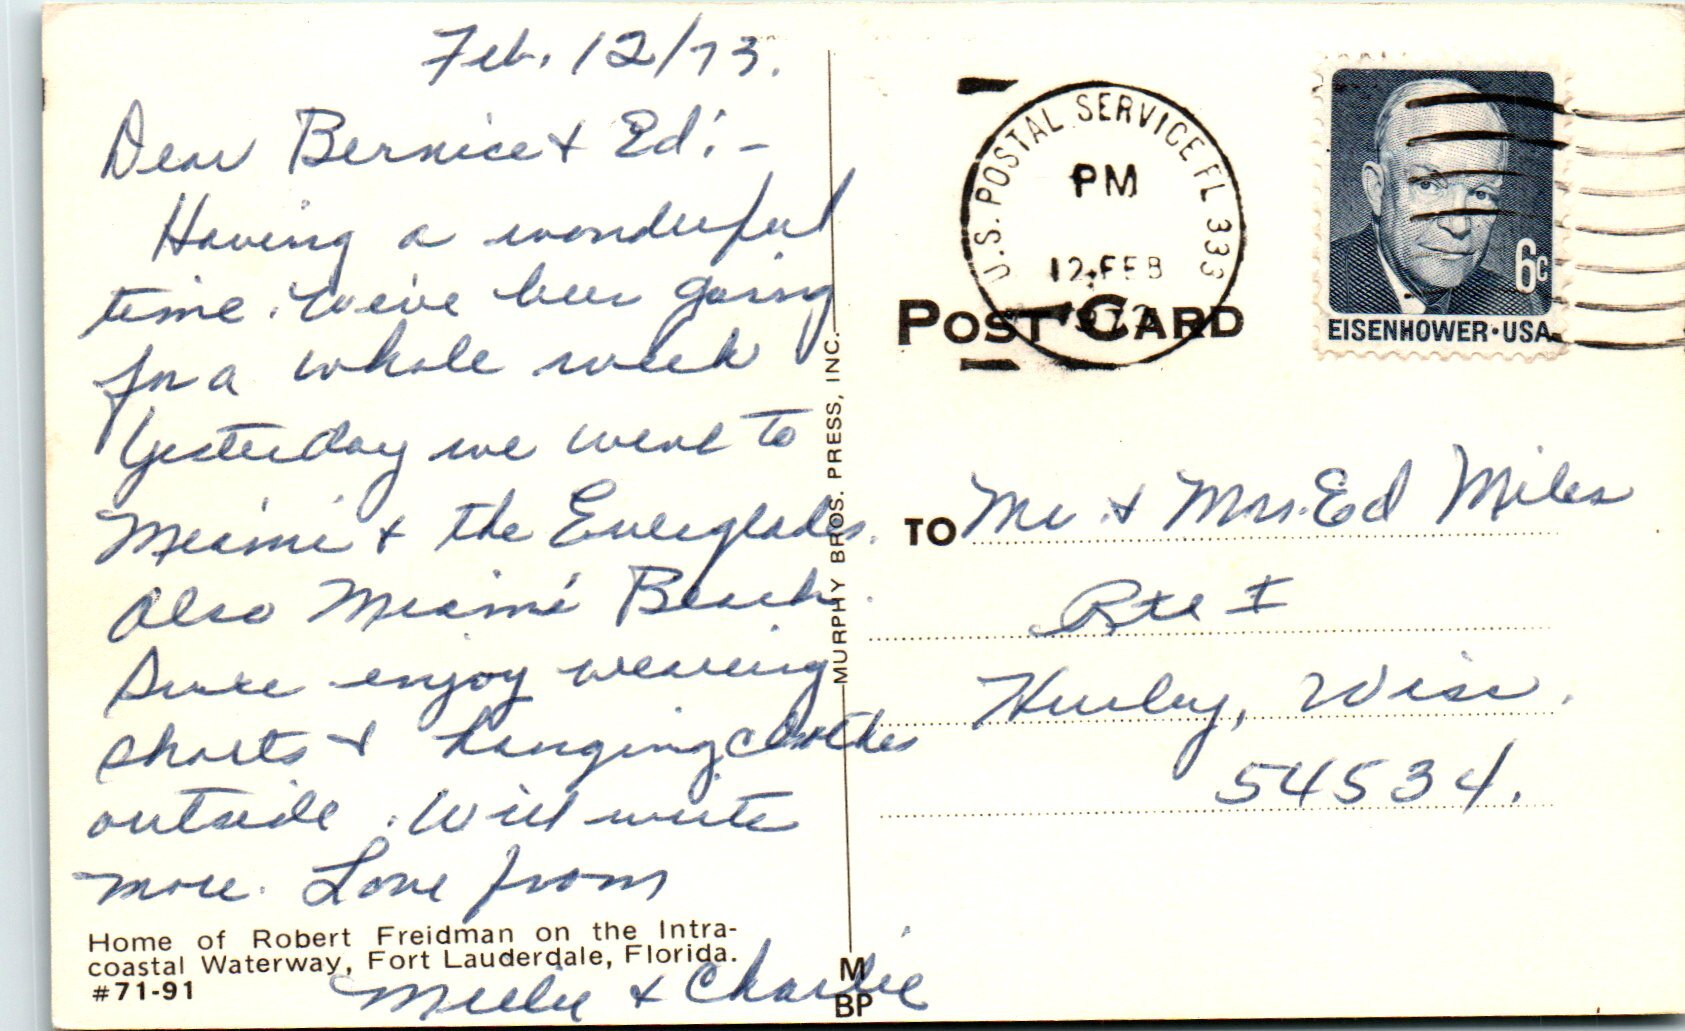 Feb. 12/73.
Dear Bernice & Ed:-
Having a wonderful
time. We've been going
for a whole week
Yesterday we went to
Miami & the Everglades.
Also Miami Beach.
Sure enjoy wearing
shorts & hanging clothes
outside. Will write
more. Love from
& Charlie
Home of Robert Freidman on the Intra-
coastal Waterway, Fort Lauderdale, Florida.
#71-91
MURPHY BROS. PRESS, INC.
M
BP
U.S. POSTAL SERVICE FL 333
PM
12 FEB
POST CARD
6c
EISENHOWER·USA
TO Mr. & Mrs. Ed Miles
Rte I
Hurley, Wisc.
54534.